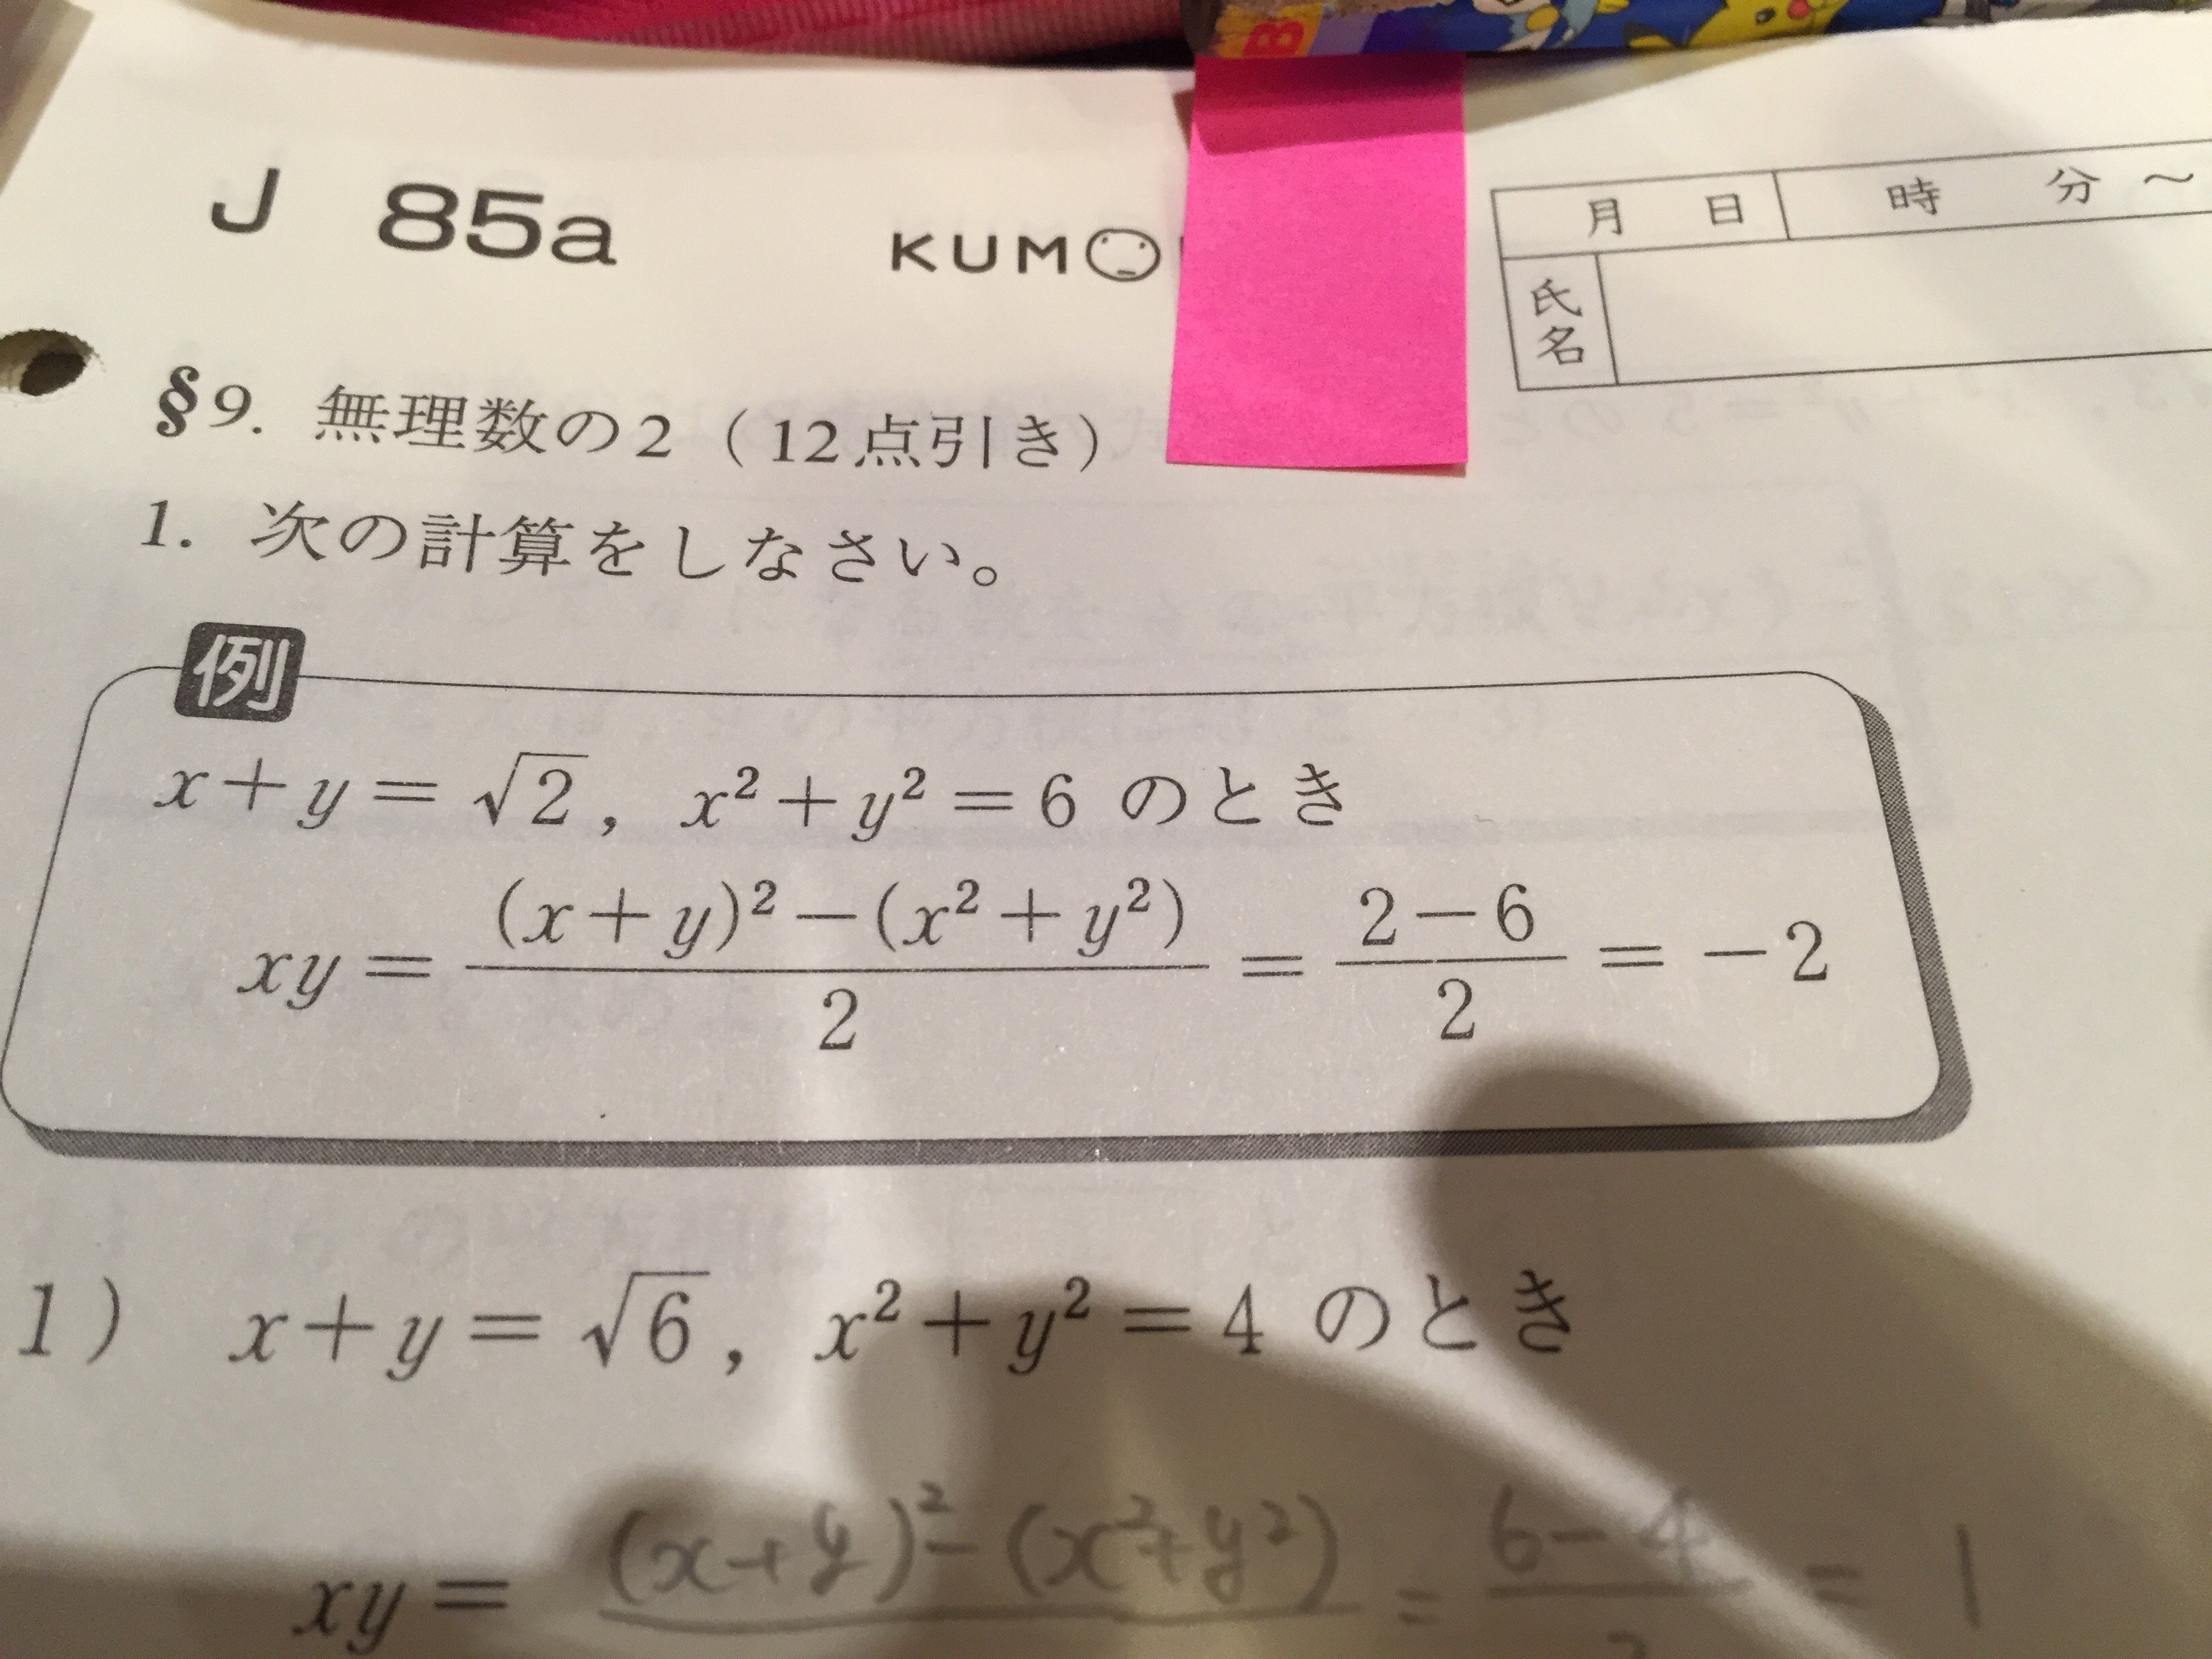 J 85a KUMO
月 日 時 分 ～
氏名
§9. 無理数の2（12点引き）
1. 次の計算をしなさい。
例
x+y=√2, x²+y²=6 のとき
xy=((x+y)²-(x²+y²))/2=(2-6)/2=-2
1) x+y=√6, x²+y²=4 のとき
xy= (x+y)²-(x²+y²) = 6-4 = 1